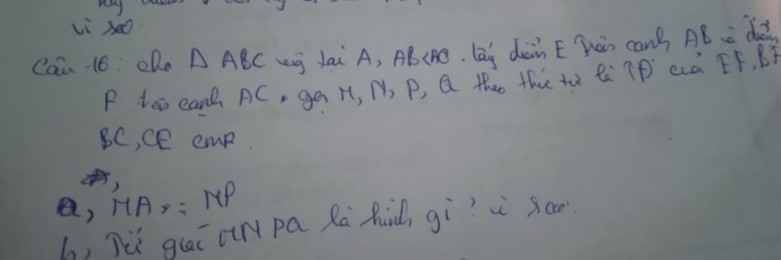 vì sao
Câu 16: cho Δ ABC vg tại A, AB<AC. lấy điểm E trên cạnh AB và điểm
F trên cạnh AC. gọi M, N, P, Q theo thứ tự là TĐ của EF, BF
BC, CE CMR
a, MA = NP
b, Tứ giác MNPQ là hình gì? vì sao.